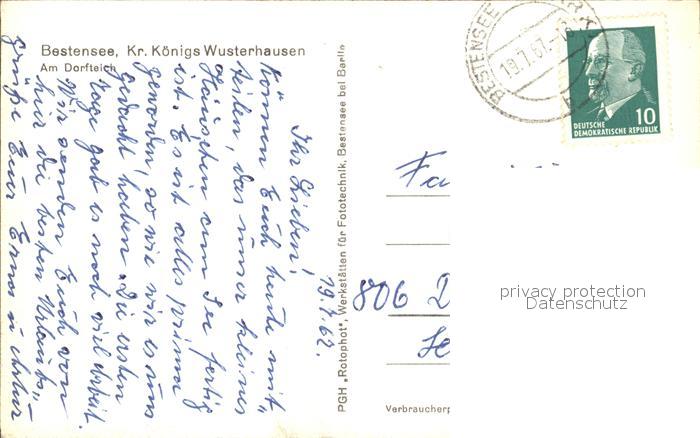 Bestensee, Kr. Königs Wusterhausen
Am Dorfteich
19.7.67.
Ihr Lieben!
Können Euch heute mit-
teilen, das unser kleines
Häuschen am See fertig
ist. Es ist alles prima
geworden, so wie wir es uns
gedacht haben. Die ersten
Tage gab es noch viel Arbeit.
Wir senden Euch von
hier die besten Urlaubs-
grüße Eure Erna u. Artur
PGH „Rotophot“, Werkstätten für Fototechnik, Bestensee bei Berlin
BESTENSEE
19.7.67
10
DEUTSCHE
DEMOKRATISCHE REPUBLIK
Fa
806 D
Verbraucherp
privacy protection
Datenschutz